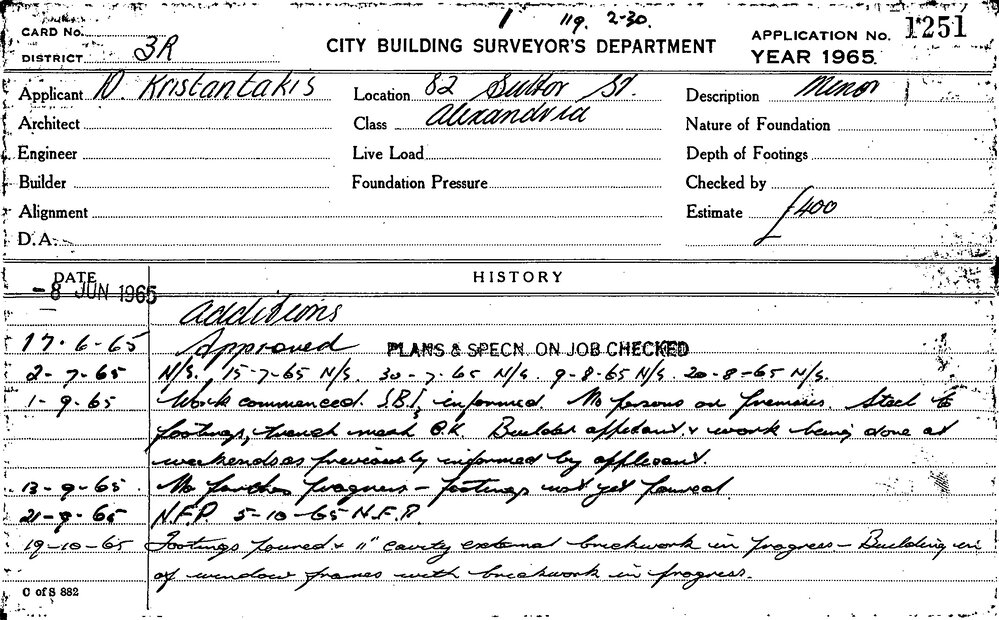 1 119. 2-30.
CARD No.
CITY BUILDING SURVEYOR'S DEPARTMENT
APPLICATION No. 1251
DISTRICT 3R
YEAR 1965.
Applicant D. Kristantakis
Location 82 Suttor St.
Description Minor
Architect
Class Alexandria
Nature of Foundation
Engineer
Live Load
Depth of Footings
Builder
Foundation Pressure
Checked by
Alignment
Estimate £400
D.A.
DATE
HISTORY
-8 JUN 1965
Additions
17-6-65 Approved PLANS & SPECN. ON JOB CHECKED
2-7-65 N/S. 15-7-65 N/S. 30-7-65 N/S. 9-8-65 N/S. 20-8-65 N/S.
1-9-65 Work commenced. S.B.I. informed. No persons on premises. Steel to
footings, trench mesh O.K. Builder applicant & work being done at
weekends as previously informed by applicant.
13-9-65 No further progress – footings not yet poured.
21-9-65 N.F.P. 5-10-65 N.F.P.
19-10-65 Footings poured & 11" cavity external brickwork in progress – Building in
of window frames with brickwork in progress.
C of S 882